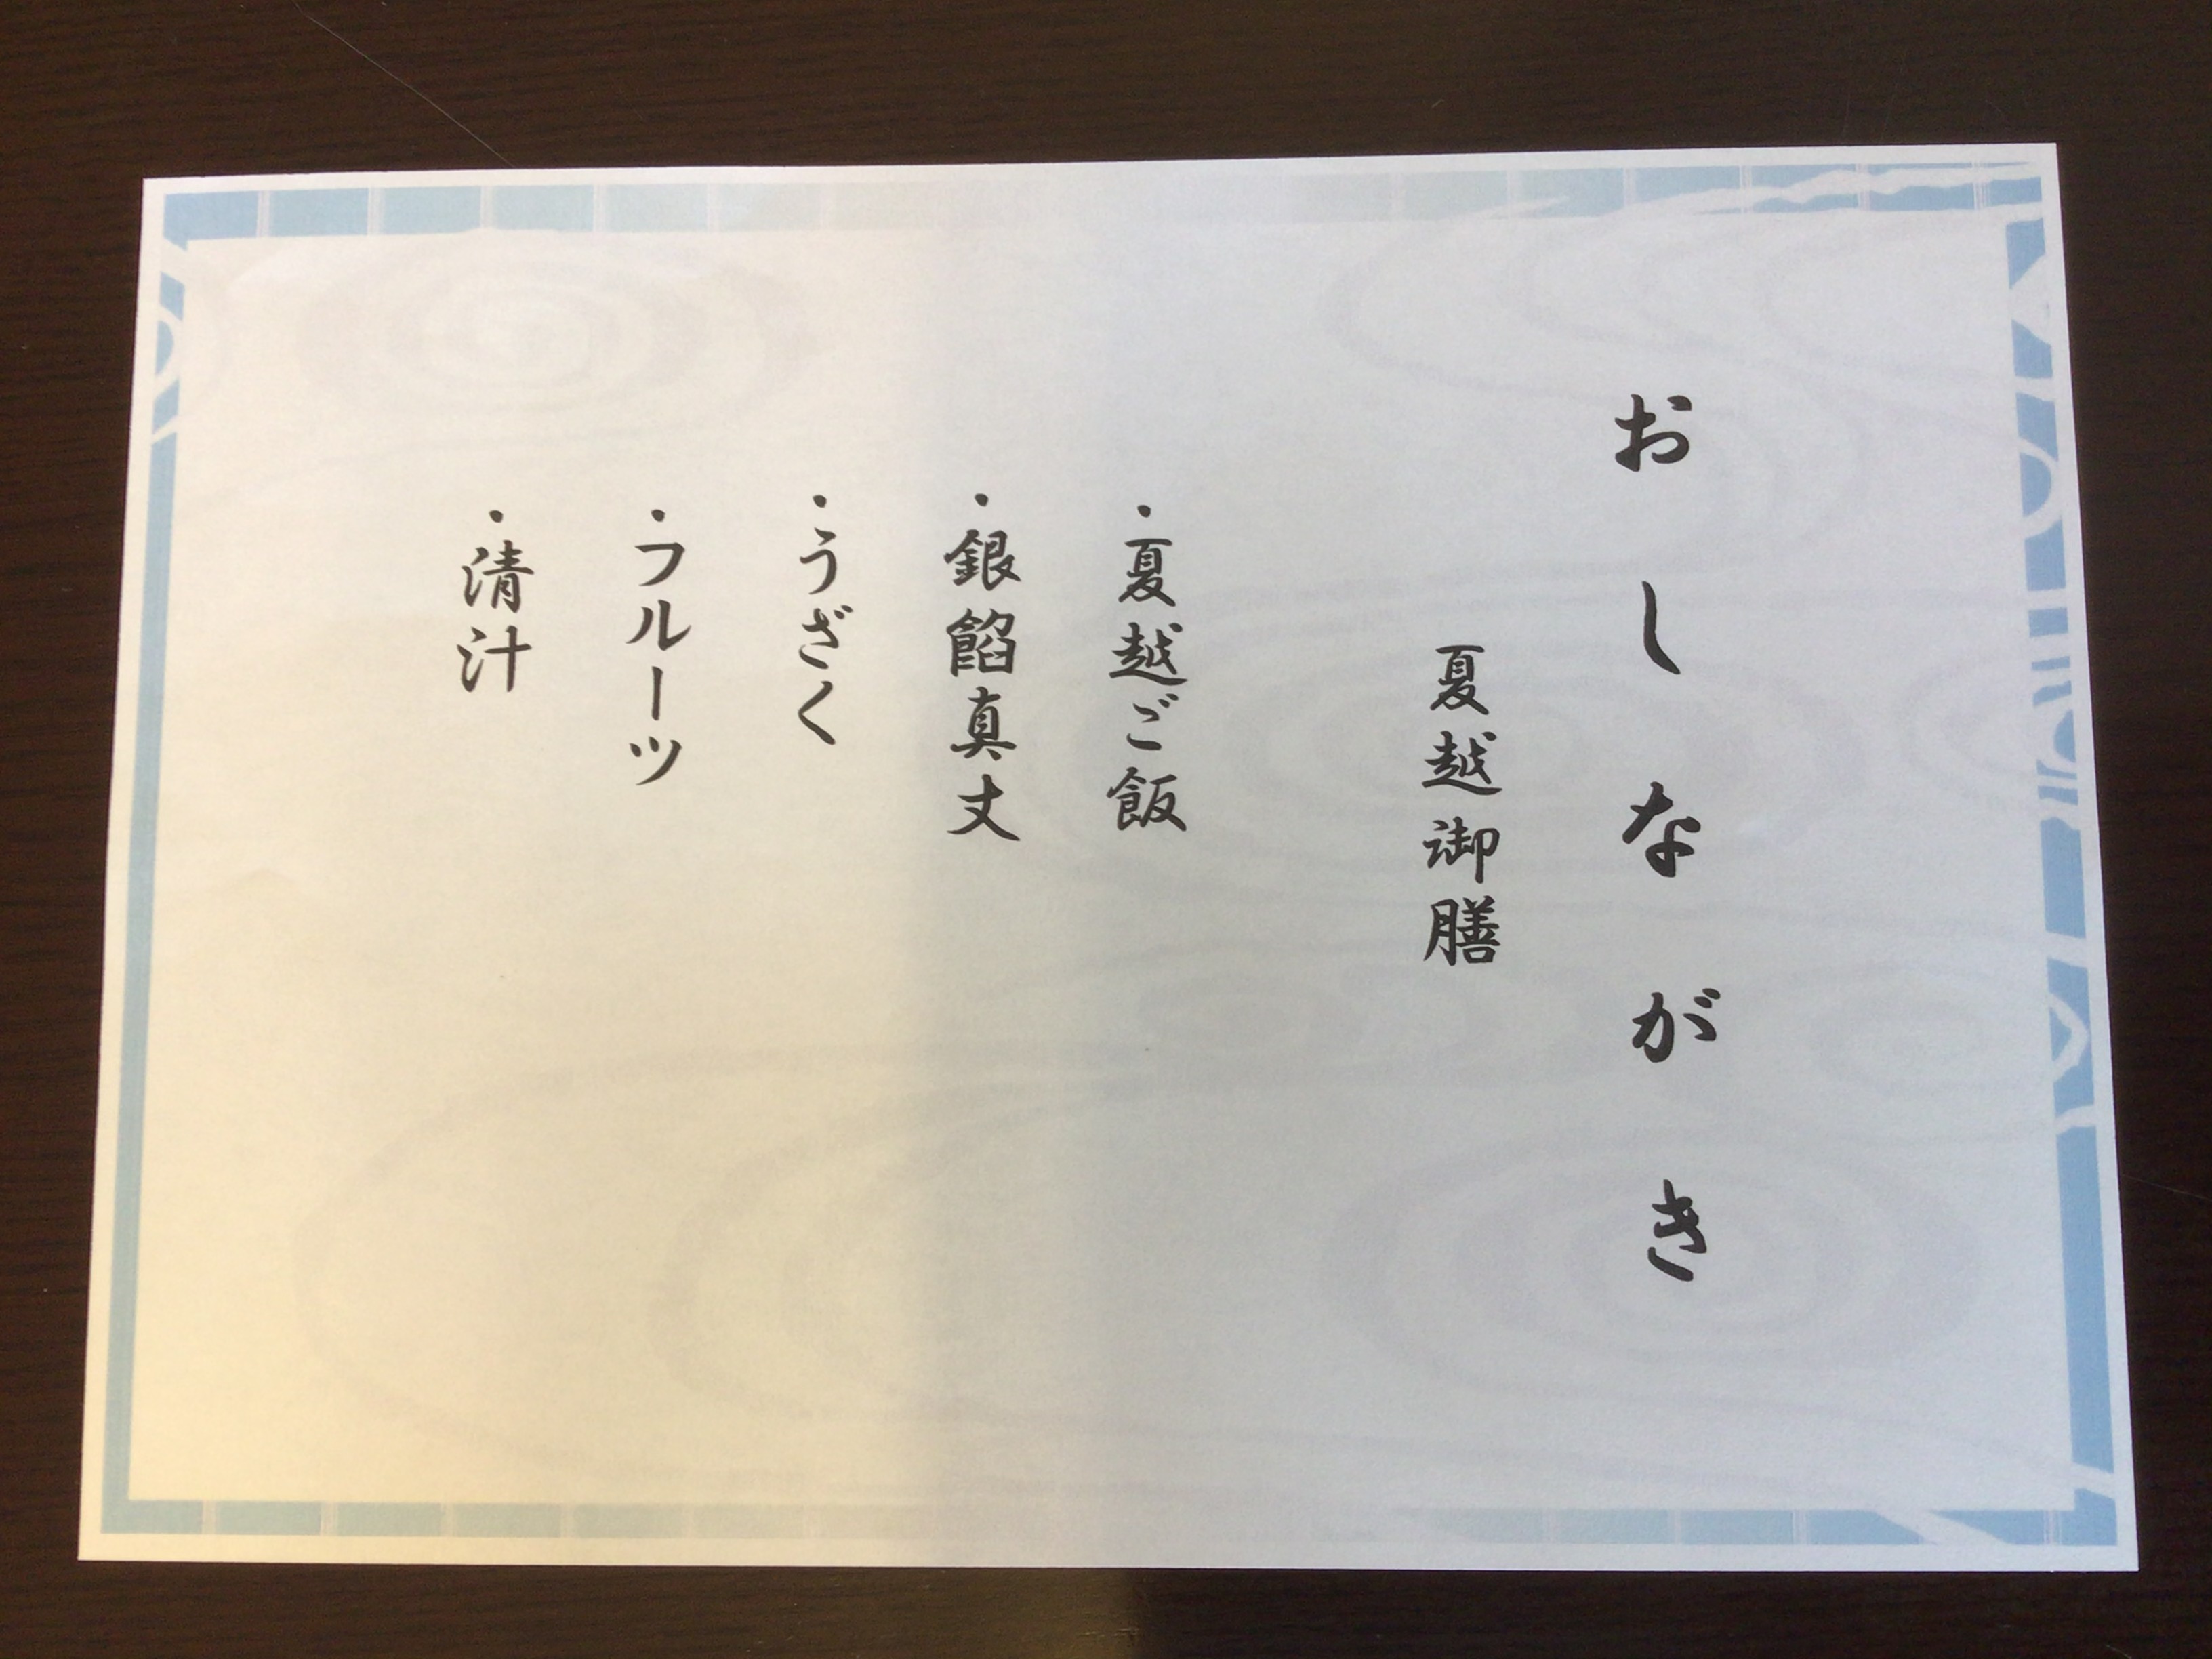 おしながき
夏越御膳
・夏越ご飯
・銀餡真丈
・うざく
・フルーツ
・清汁